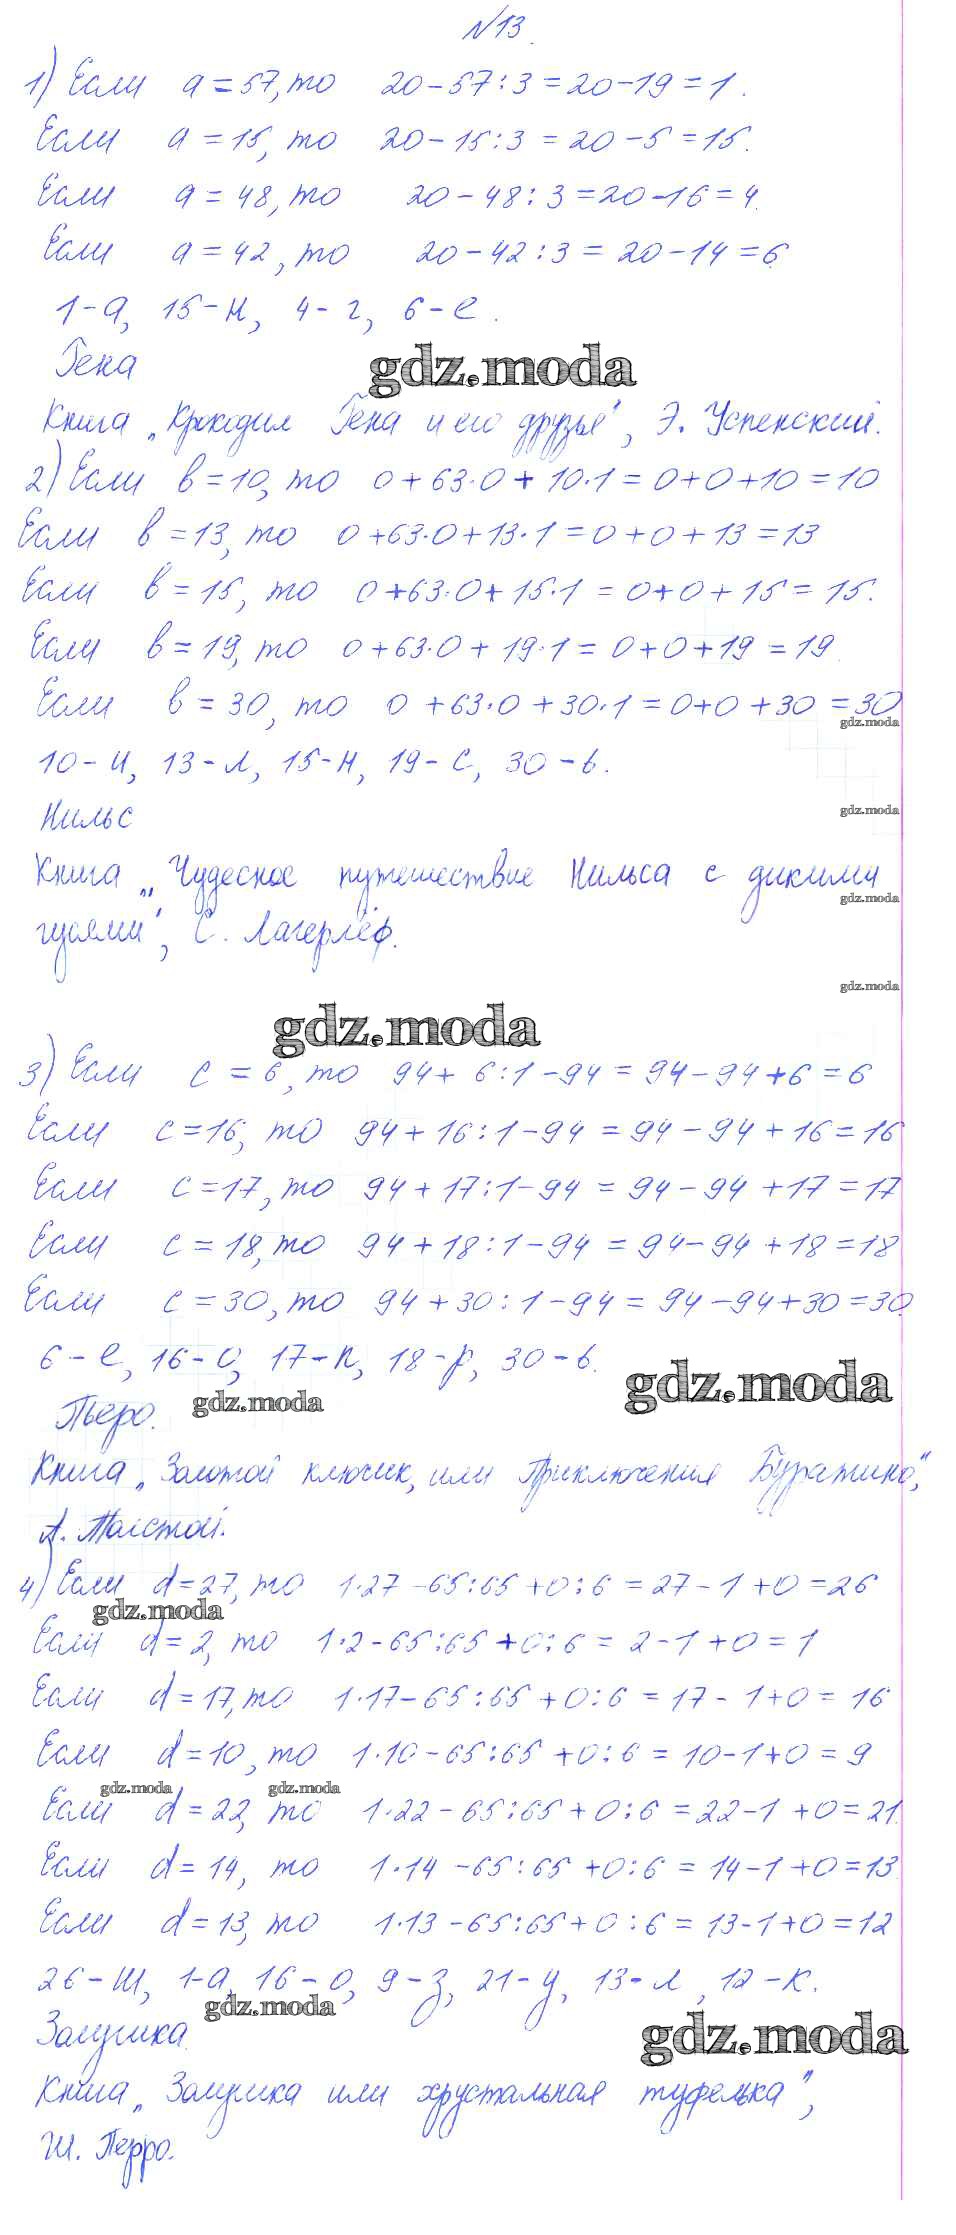 №13.
1) Если а = 57, то 20 - 57 : 3 = 20 - 19 = 1.
Если а = 15, то 20 - 15 : 3 = 20 - 5 = 15.
Если а = 48, то 20 - 48 : 3 = 20 - 16 = 4.
Если а = 42, то 20 - 42 : 3 = 20 - 14 = 6.
1 - а, 15 - н, 4 - г, 6 - е.
Гена
gdz.moda
Книга „Крокодил Гена и его друзья", Э. Успенский.
2) Если в = 10, то 0 + 63·0 + 10·1 = 0 + 0 + 10 = 10
Если в = 13, то 0 + 63·0 + 13·1 = 0 + 0 + 13 = 13
Если в = 15, то 0 + 63·0 + 15·1 = 0 + 0 + 15 = 15.
Если в = 19, то 0 + 63·0 + 19·1 = 0 + 0 + 19 = 19.
Если в = 30, то 0 + 63·0 + 30·1 = 0 + 0 + 30 = 30
gdz.moda
10 - и, 13 - л, 15 - н, 19 - с, 30 - ь.
Нильс
gdz.moda
Книга „Чудесное путешествие Нильса с дикими
gdz.moda
гусями", С. Лагерлёф.
gdz.moda
gdz.moda
3) Если с = 6, то 94 + 6 : 1 - 94 = 94 - 94 + 6 = 6
Если с = 16, то 94 + 16 : 1 - 94 = 94 - 94 + 16 = 16
Если с = 17, то 94 + 17 : 1 - 94 = 94 - 94 + 17 = 17
Если с = 18, то 94 + 18 : 1 - 94 = 94 - 94 + 18 = 18
Если с = 30, то 94 + 30 : 1 - 94 = 94 - 94 + 30 = 30.
6 - е, 16 - о, 17 - п, 18 - р, 30 - ь.
gdz.moda
Пьеро.
gdz.moda
Книга „Золотой ключик, или Приключения Буратино",
А. Толстой.
4) Если d = 27, то 1·27 - 65 : 65 + 0 : 6 = 27 - 1 + 0 = 26
gdz.moda
Если d = 2, то 1·2 - 65 : 65 + 0 : 6 = 2 - 1 + 0 = 1
Если d = 17, то 1·17 - 65 : 65 + 0 : 6 = 17 - 1 + 0 = 16
Если d = 10, то 1·10 - 65 : 65 + 0 : 6 = 10 - 1 + 0 = 9
gdz.moda gdz.moda
Если d = 22, то 1·22 - 65 : 65 + 0 : 6 = 22 - 1 + 0 = 21.
Если d = 14, то 1·14 - 65 : 65 + 0 : 6 = 14 - 1 + 0 = 13
Если d = 13, то 1·13 - 65 : 65 + 0 : 6 = 13 - 1 + 0 = 12
26 - ш, 1 - а, 16 - о, 9 - з, 21 - у, 13 - л, 12 - к.
gdz.moda
Золушка.
gdz.moda
Книга „Золушка или хрустальная туфелька",
Ш. Перро.